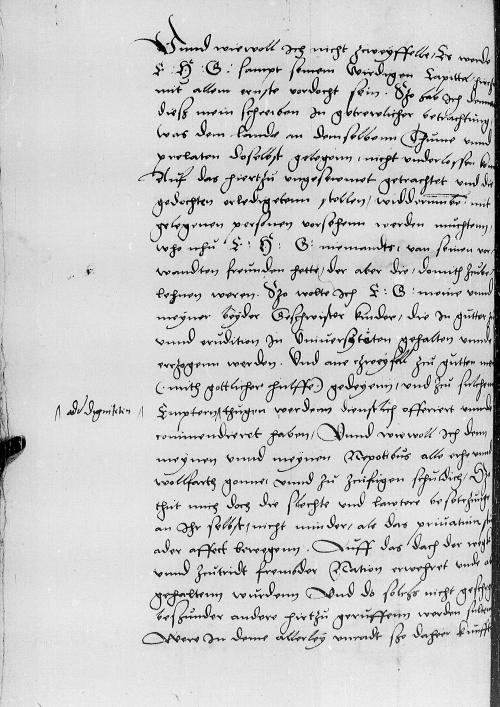 Vnnd wiewoll Ich nicht zweyffelle, Ee werde
E: H: G: sampt seinem wirdigen Capittel hierzu
mit allem ernste vordocht sein. Szo hab Ich dennoch
dieß mein schreiben In getrewlicher betrachtung,
was dem lande an demselbenn Thume vnnd
prelaten doselbst gelegenn, nicht vnderlossen
Auf das hiertzu vngesewmet getrachtet vnnd die
gedochten erledigetenn stellen, widderumbe, mit
gelegenen personen vorsehenn werden muchtenn,
who nhu E: H: G: niemandts, van seinen vor
wandten freunden hette, der aber die, domith zuue
lehnen weren. Szo wolte Ich E: G: meine vnnd
meyner beyder Geschwister kinder, die In gutter
vnnd erudition In Vniuersiteten gehalten vnnd
ertzogenn werden. Vnd ane zweyfel zu gutten
(mith gottlicher hulffe) gedeyenn, vnd zu sulchen
ad dignitatem
Emptern, thugen werdenn dienstlich offeriert vnnd
commendieret haben, Vnnd wiewoll Ich denn
meynen vnnd meynen Nepotibus alle ehr vnnd
wolfarth gonne, vnnd zu zufugen schuldich,
thut mich doch die slechte vnnd lawtere
an Ihr selbst, nicht minder, als das priuatum
ader affect bewegenn. Auff das dach der
vnnd Zutridt frembder Nation erwehret vnd
gehaltenn wurdenn Vnd do solchs nicht gescheg
beszunder andere hirtzu geruffenn werden
Were In deme allerley vnradt szo daher